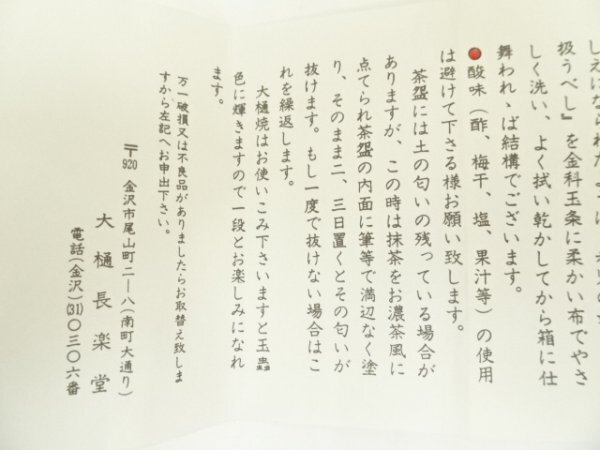 扱うべし』を金科玉条に柔かい布でやさ
しく洗い、よく拭い乾かしてから箱に仕
舞われゝば結構でございます。
●酸味（酢、梅干、塩、果汁等）の使用
は避けて下さる様お願い致します。
茶盌には土の匂いの残っている場合が
ありますが、この時は抹茶をお濃茶風に
点てられ茶盌の内面に筆等で満辺なく塗
り、そのまま二、三日置くとその匂いが
抜けます。もし一度で抜けない場合はこ
れを繰返します。
大樋焼はお使いこみ下さいますと玉蟲
色に輝きますので一段とお楽しみになれ
ます。
万一破損又は不良品がありましたらお取替え致しま
すから左記へお申出下さい。
〒920 金沢市尾山町二―八(南町大通り)
大樋長楽堂
電話(金沢)(31)〇三〇六番